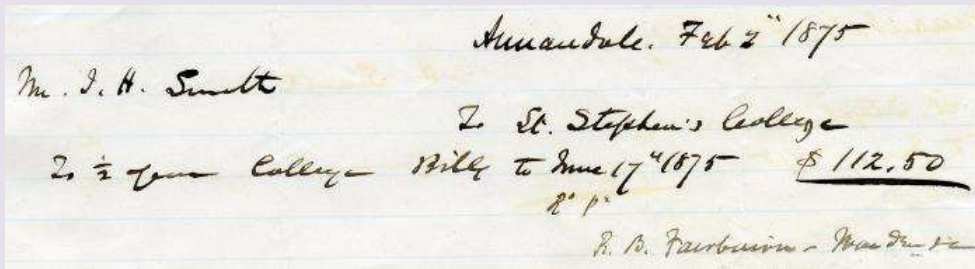 Annandale. Feb 2" 1875
Mr. I. H. Smith
To St. Stephen's College
To ½ year College Bills to June 17" 1875 $112.50
R. B. Fairbairn - Warden